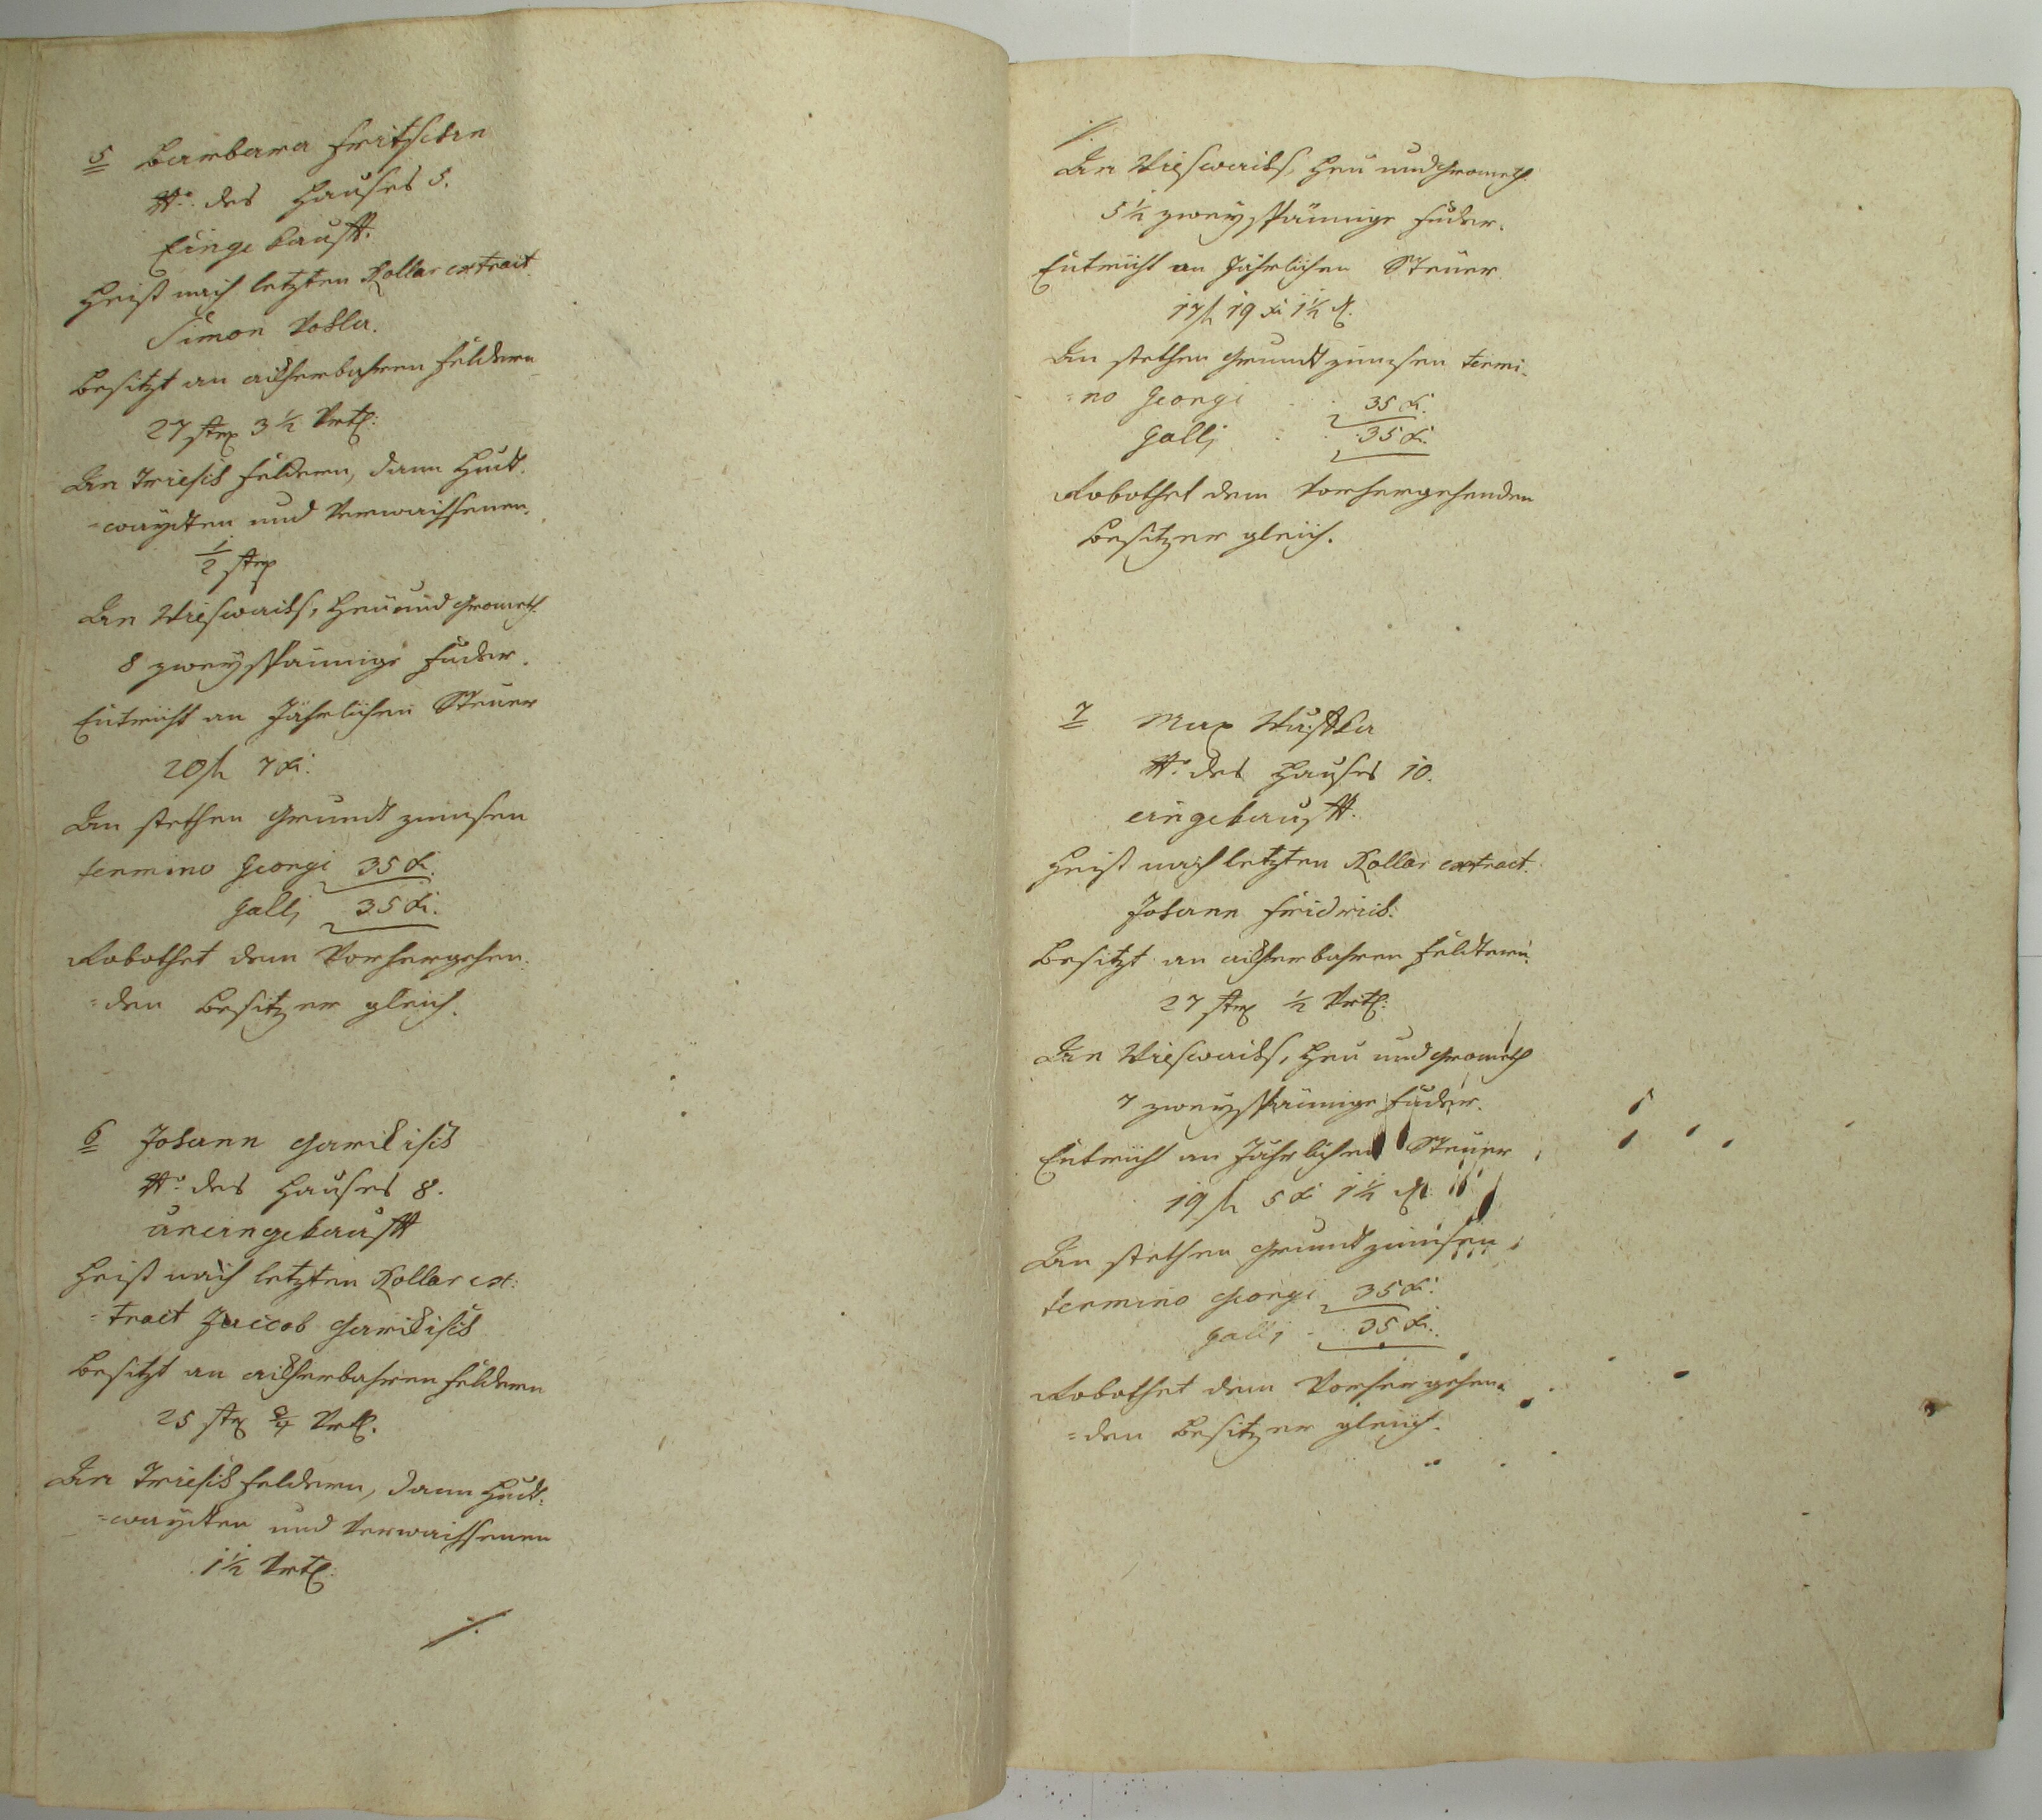 5 Barbara Fritschin
No. des Hauses 5.
Eingekaufft.
Heist nach letzten Rollar extract
Simon
Besitzt an ackherbahren Feldern
27 strich 3 1/2 Vrtl:
An Triesch Feldern, dann Hutt-
=waydten und Verwachsenen.
1/2 strich
An Wieswachs, Heu und Grometh
8 zweyspännige Fuder.
Entricht an Jährlichen Steuer
20 f 7 Xr.
An stethen Grundt zinnsen
termino Georgi 35 Xr.
Galli 35 Xr.
Robothet dem Vorhergehen-
=den Besitzer gleich.
6 Johann
No. des Hauses 8.
uneingekaufft
Heist nach letzten Rollar ex:
=tract Jaccob
Besitzt an ackherbahren Feldern
25 strich 3/4 Vrtl.
An Triesch Feldern, dann Hutt-
=waydten und Verwachsenen
1 1/2 Vrtl:
./.
./.
An Wieswachs, Heu und Grometh.
5 1/2 zweyspännige Fuder.
Entricht an Jährlichen Steuer.
17 f 19 Xr 1 1/2 d.
An stethen Grundt zinnsen termi-
=no Georgi 35 Xr.
Galli 35 Xr.
Robothet dem Vorhergehenden
Besitzer gleich.
7 Max
No. des Hauses 10.
eingekaufft.
Heist nach letzten Rollar extract.
Johann Fridrich:
Besitzt an ackherbahren Feldtern:
27 strich 1/2 Vrtl:
An Wieswachs, Heu und Grometh
7 zweyspännige Fuder.
Entricht an Jährlichen Steuer
19 f 5 Xr 1 1/2 d.
An stethen Grundt zinnsen
termino Georgi 35 Xr.
Galli 35 Xr.
Robothet dem Vorhergehen-
=den Besitzer gleich.